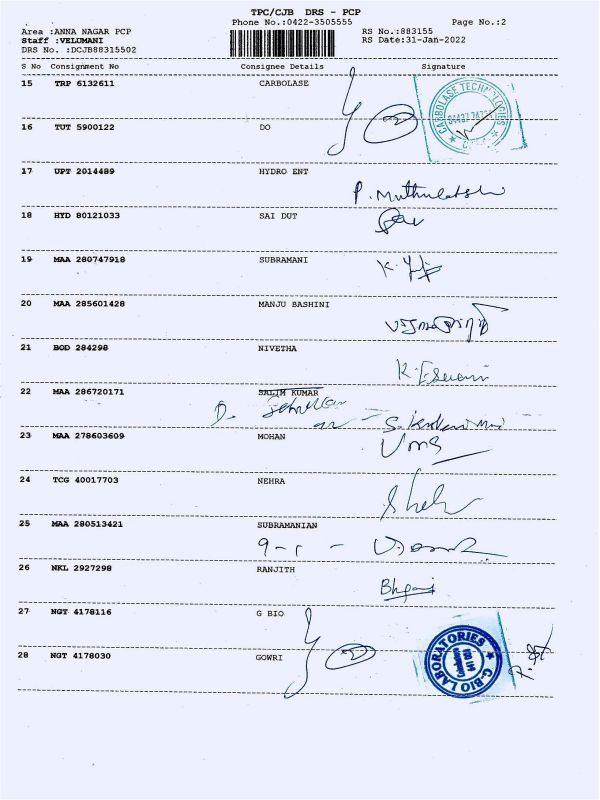 TPC/CJB DRS - PCP
Phone No.:0422-3505555 Page No.:2
Area :ANNA NAGAR PCP RS No.:883155
Staff :VELUMANI RS Date:31-Jan-2022
DRS No. :DCJB88315502
S No Consignment No Consignee Details Signature
15 TRP 6132611 CARBOLASE
CARBOLASE TECHNOLOGIES
16 TUT 5900122 DO
17 UPT 2014489 HYDRO ENT
18 HYD 80121033 SAI DUT
19 MAA 280747918 SUBRAMANI
20 MAA 285601428 MANJU BASHINI
21 BOD 284298 NIVETHA
K. Eswari
22 MAA 286720171 SALIM KUMAR
23 MAA 278603609 MOHAN
24 TCG 40017703 NEHRA
25 MAA 280513421 SUBRAMANIAN
26 NKL 2927298 RANJITH
27 NGT 4178116 G BIO
G-BIO LABORATORIES
28 NGT 4178030 GOWRI